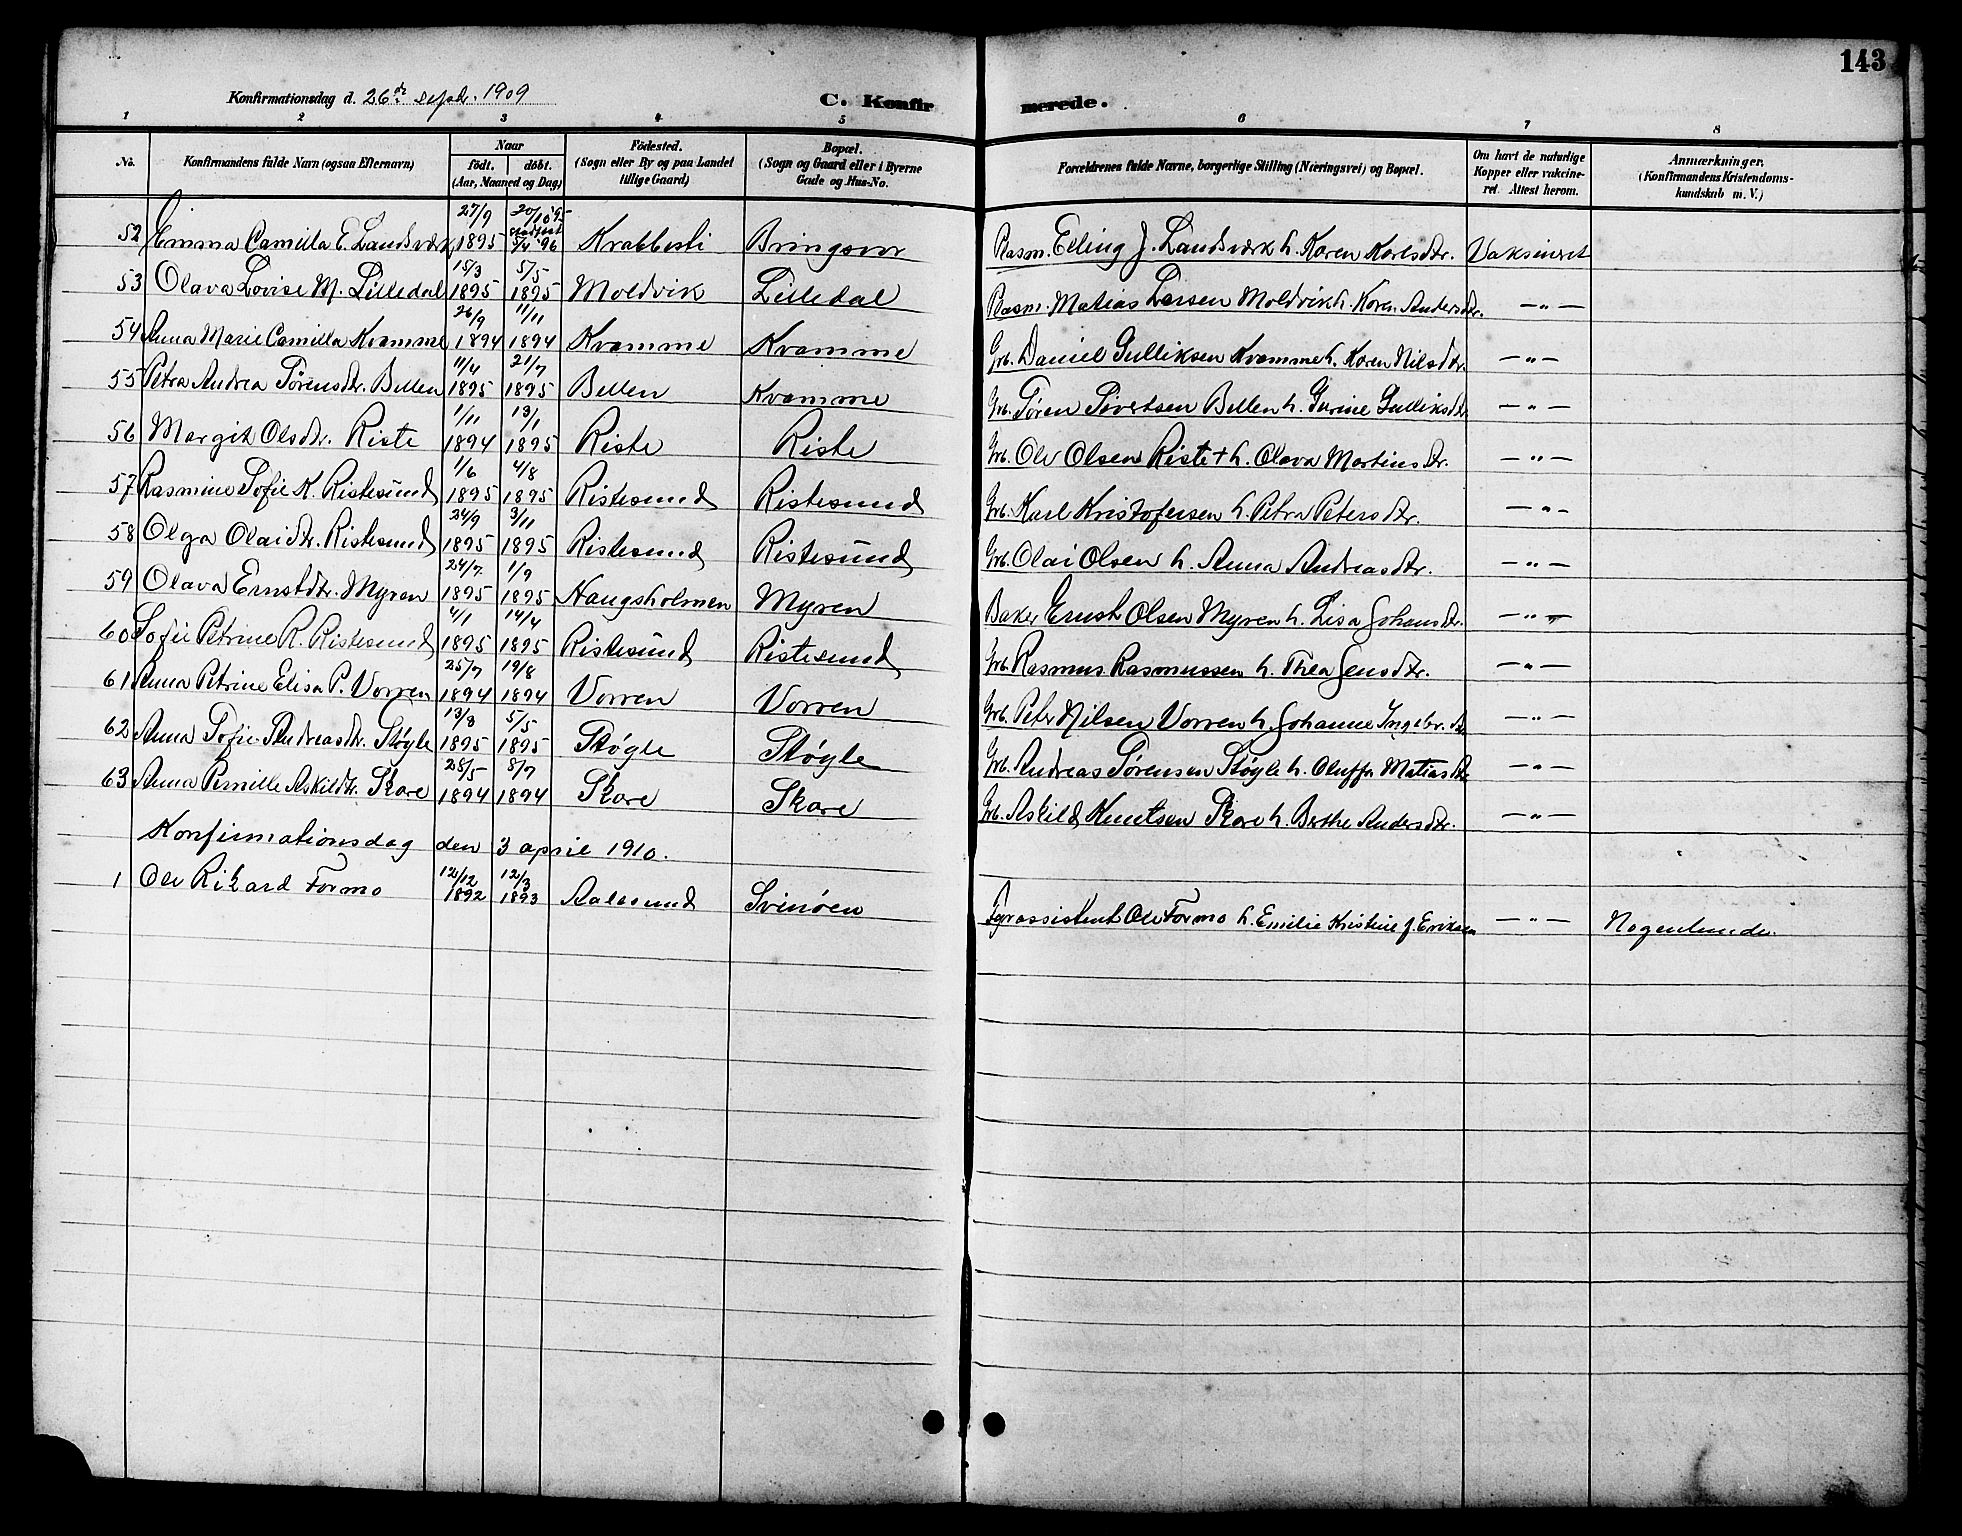 143
Konfirmationsdag d. 26de septr. 1909 C. Konfir merede.
1 2 3 4 5 6 7 8
No. Konfirmandens fulde Navn (ogsaa Efternavn) Naar födt. döbt. (Aar, Maaned og Dag) Födested. (Sogn eller By og paa Landet tillige Gaard) Bopæl. (Sogn og Gaard eller i Byerne Gade og Hus-No. Forældrenes fulde Navne, borgerlige Stilling (Næringsvei) og Bopæl. Om havt de naturlige Kopper eller vakcineret. Attest herom. Anmærkninger. (Konfirmandens Kristendomskundskab m. V.)
52 Emma Camilla E. Landsværk 27/9 1895 20/10 95 5/4 96 Krabbesti Bringsvor Rasm. Elling J. Landsværk h. Karen Karlsdtr. Vaksineret
53 Olava Lovise M. Lilledal 15/3 1895 5/5 1895 Moldvik Lilledal Rasm. Matias Larsen Moldvik h. Karen Andersdtr. —"—
54 Anna Marie Camilla Kvamme 26/9 1894 11/11 1894 Kvamme Kvamme Grb. Daniel Gulliksen Kvamme h. Karen Nilsdtr. —"—
55 Petra Andrea Sørensdtr. Bellen 11/4 1895 21/7 1895 Bellen Kvamme Grb. Søren Sivertsen Bellen h. Gurine Gulliksdtr. —"—
56 Margit Olsdtr. Riste 1/11 1894 13/1 1895 Riste Riste Grb. Ole Olsen Riste + h. Olava Martinsdtr. —"—
57 Rasmine Sofie K. Ristesund 1/6 1895 4/8 1895 Ristesund Ristesund Grb. Karl Kristofersen h. Petra Petersdtr. —"—
58 Olga Olaidtr. Ristesund 24/9 1895 3/11 1895 Ristesund Ristesund Grb. Olai Olsen h. Anna Andreasdtr. —"—
59 Olava Ernstdtr. Myren 24/7 1895 1/9 1895 Haugsholmen Myren Baker Ernst Olsen Myren h. Lisa Johansdtr. —"—
60 Sofie Petrine R. Ristesund 4/1 1895 14/4 1895 Ristesund Ristesund Grb. Rasmus Rasmussen h. Thea Jensdtr. —"—
61 Anna Petrine Elisa P. Vorren 25/7 1894 19/8 1894 Vorren Vorren Grb. Peter Nilsen Vorren h. Johanne Ingebr. dtr. —"—
62 Anna Sofie Andreasdtr. Støyle 13/3 1895 5/5 1895 Støyle Støyle Grb. Andreas Sørensen Støyle h. Oluffa Matiasdtr. —"—
63 Anna Pernille Askildtr. Skare 28/5 1894 8/7 1894 Skare Skare Grb. Askild Knutsen Skare h. Berthe Andersdtr. —"—
Konfirmationsdag den 3 april 1910.
1 Ole Rikard Formo 12/12 1892 12/3 1893 Aalesund Svinöen Fyrassistent Ole Formo h. Emilie Kristine f. Eriksen —"— Nogenlunde.